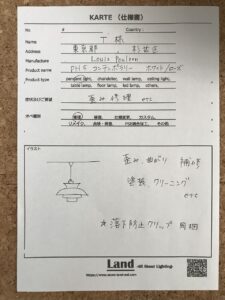 KARTE（仕様書）
No : # Country :
Name T 様
Address 東京都 杉並区
Manufacture Louis Poulsen
Product name PH5 コンテンポラリー ホワイト/ローズ
Product type pendant light, chandelier, wall lamp, ceiling light,
table lamp, floor lamp, led lamp, others,
歪み 修理 etc
修理, 修復, 仕様変更, カスタム,
リメイク,
イラスト
歪み、曲がり 補修
塗装、クリーニング
etc
※落下防止クリップ
Land -All About Lighting-